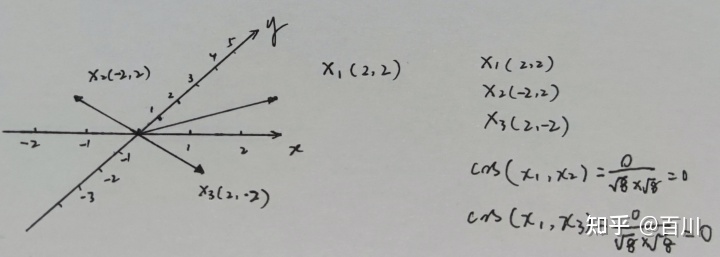 y
5
4
3
2
1
x₂(-2,2)
x₁(2,2)
-2
-1
1
2
x
-1
-2
-3
x₃(2,-2)
x₁(2,2)
x₂(-2,2)
x₃(2,-2)
cos(x₁,x₂)=0/√8×√8=0
cos(x₁,x₃)=0/√8×√8=0
知乎 @百川